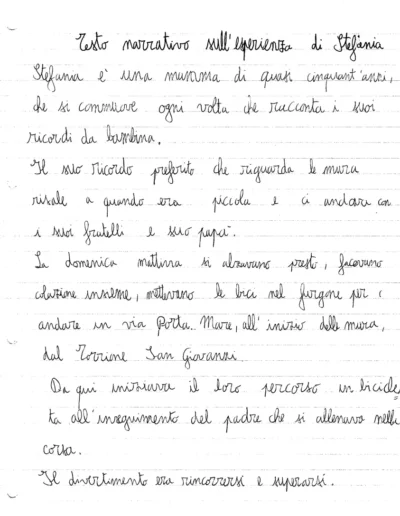 Testo narrativo sull'esperienza di Stefania
Stefania è una mamma di quasi cinquant'anni,
che si commuove ogni volta che racconta i suoi
ricordi da bambina.
Il suo ricordo preferito che riguarda le mura
risale a quando era piccola e ci andava con
i suoi fratelli e suo papà.
La domenica mattina si alzavano presto, facevano
colazione insieme, mettevano le bici nel furgone per
andare in via Porta Mare, all'inizio delle mura,
dal Torrione San Giovanni.
Da qui iniziava il loro percorso in bicicle
ta all'inseguimento del padre che si allenava nella
corsa.
Il divertimento era rincorrersi e superarsi.